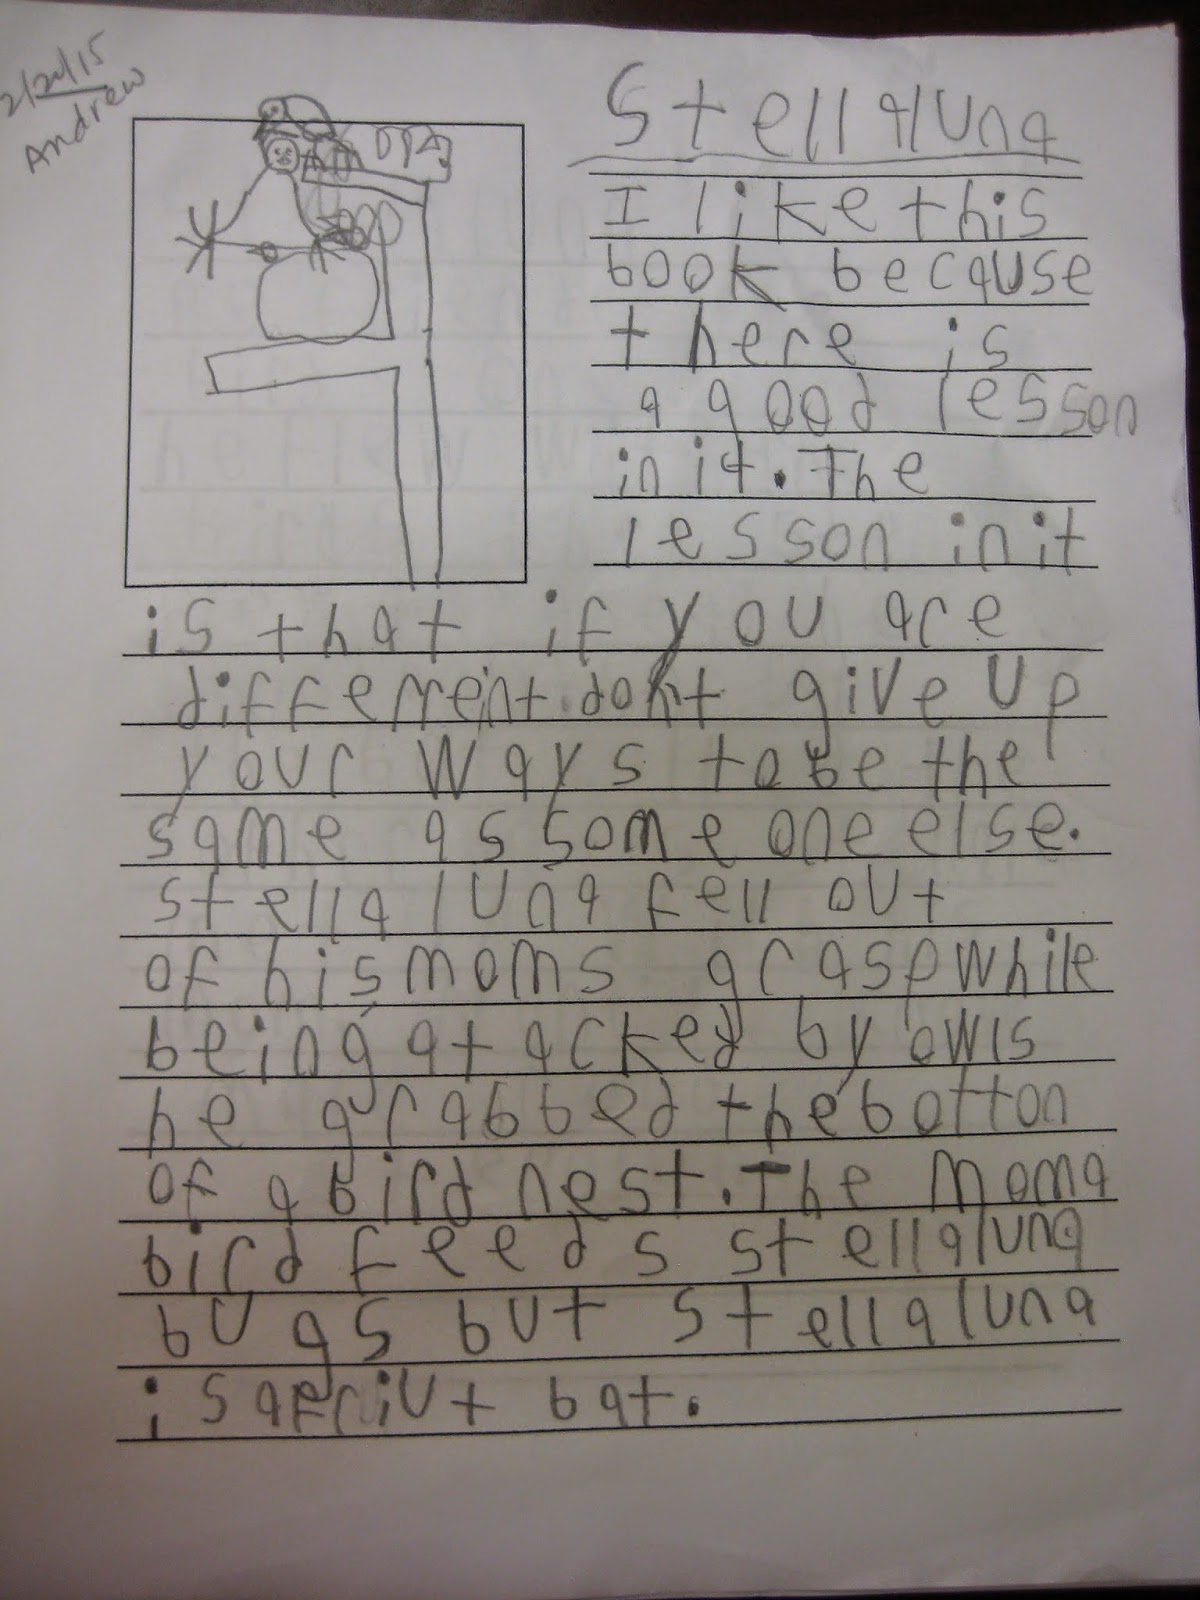 2/20/15
Andrew
Stellaluna
I like this
book because
there is
a good lesson
in it. The
lesson in it
is that if you are
different. dont give up
your ways to be the
same as some one else.
stellaluna fell out
of his moms grasp while
being atacked by owls
he grabbed the botton
of a bird nest. The moma
bird feeds stellaluna
bugs but stellaluna
is a friut bat.